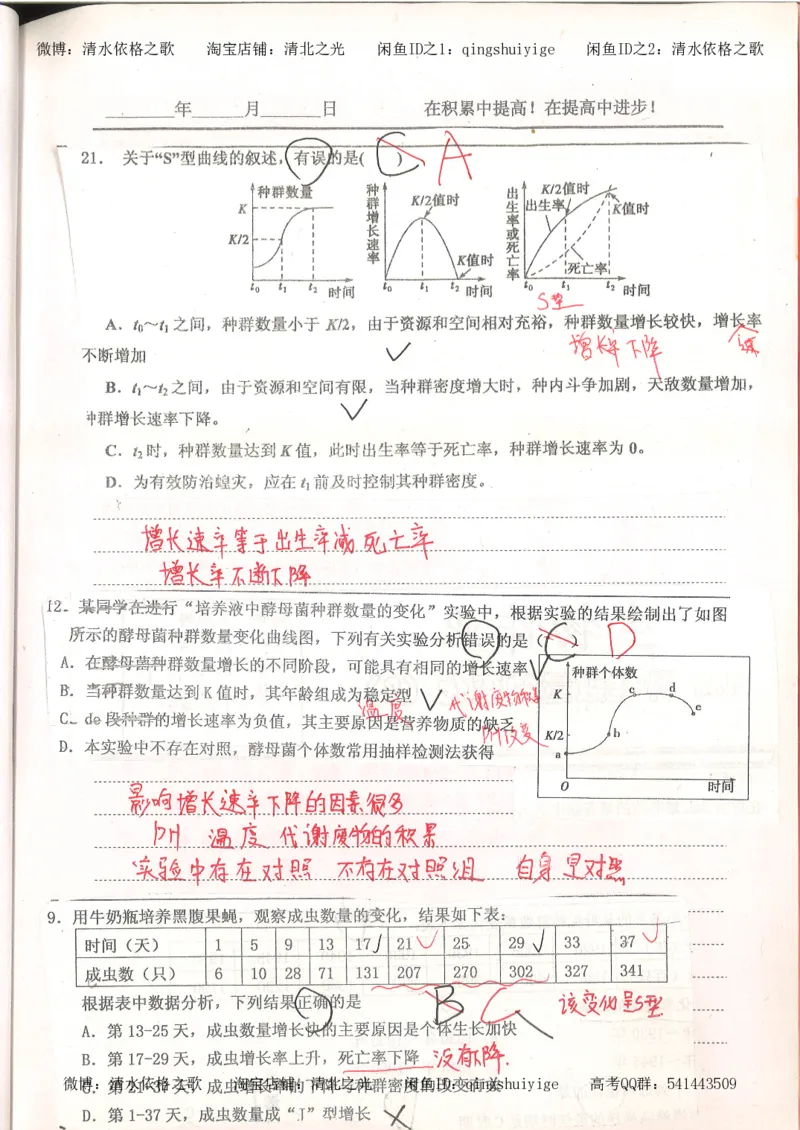 微博：清水依格之歌 淘宝店铺：清北之光 闲鱼ID之1：qingshuiyige 闲鱼ID之2：清水依格之歌
______年____月____日 在积累中提高！在提高中进步！
21. 关于“S”型曲线的叙述，有误的是( C ) A
种群数量 K K/2 t0 t1 t2 时间
种群增长速率 K/2值时 K值时 t0 t1 t2 时间
出生率或死亡率 K/2值时 出生率 K值时 死亡率 t0 t1 t2 时间
S型
A. t0～t1之间，种群数量小于 K/2，由于资源和空间相对充裕，种群数量增长较快，增长率
不断增加
增长率下降
B. t1～t2之间，由于资源和空间有限，当种群密度增大时，种内斗争加剧，天敌数量增加，
种群增长速率下降。
C. t2时，种群数量达到 K 值，此时出生率等于死亡率，种群增长速率为 0。
D. 为有效防治蝗灾，应在 t1前及时控制其种群密度。
增长速率等于出生率减死亡率
增长率不断下降
12. 某同学在进行“培养液中酵母菌种群数量的变化”实验中，根据实验的结果绘制出了如图
所示的酵母菌种群数量变化曲线图，下列有关实验分析错误的是（C） D
A. 在酵母菌种群数量增长的不同阶段，可能具有相同的增长速率
B. 当种群数量达到 K 值时，其年龄组成为稳定型
温度 代谢废物积累
C. de 段种群的增长速率为负值，其主要原因是营养物质的缺乏
PH改变
D. 本实验中不存在对照，酵母菌个体数常用抽样检测法获得
种群个体数 K K/2 a b c d e O 时间
影响增长速率下降的因素很多
PH 温度 代谢废物的积累
实验中存在对照 不存在对照组 自身是对照
9. 用牛奶瓶培养黑腹果蝇，观察成虫数量的变化，结果如下表：
时间（天） 1 5 9 13 17 21 25 29 33 37
成虫数（只） 6 10 28 71 131 207 270 302 327 341
根据表中数据分析，下列结果正确的是 B C 该变化是S型
A. 第 13-25 天，成虫数量增长快的主要原因是个体生长加快
B. 第 17-29 天，成虫增长率上升，死亡率下降 没有下降.
微博：清水依格之歌 淘宝店铺：清北之光 闲鱼ID：qingshuiyige 高考QQ群：541443509
D. 第 1-37 天，成虫数量成“J”型增长